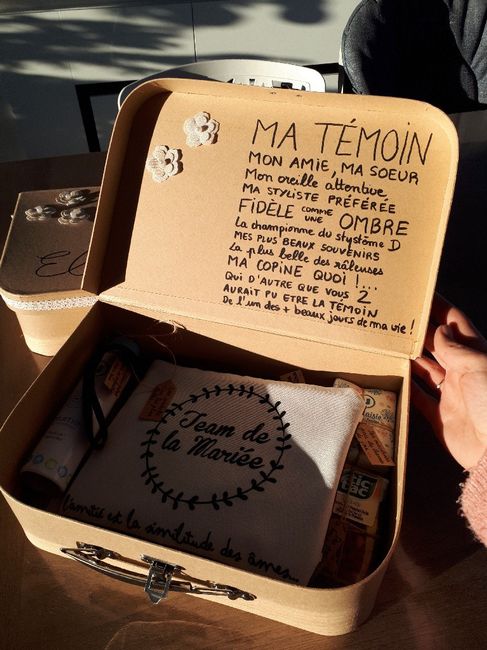 MA TÉMOIN
MON AMIE, MA SOEUR
Mon oreille attentive
MA STYLISTE PRÉFÉRÉE
FIDÈLE COMME UNE OMBRE
La championne du stystème D
MES PLUS BEAUX SOUVENIRS
La plus belle des râleuses
MA COPINE QUOI !...
Qui D'AUTRE QUE VOUS 2
AURAIT PU ETRE LA TÉMOIN
De l'un des + beaux jours de ma vie !
El
Team de
la Mariée
l'amitié est la similitude des âmes...
tic
tac